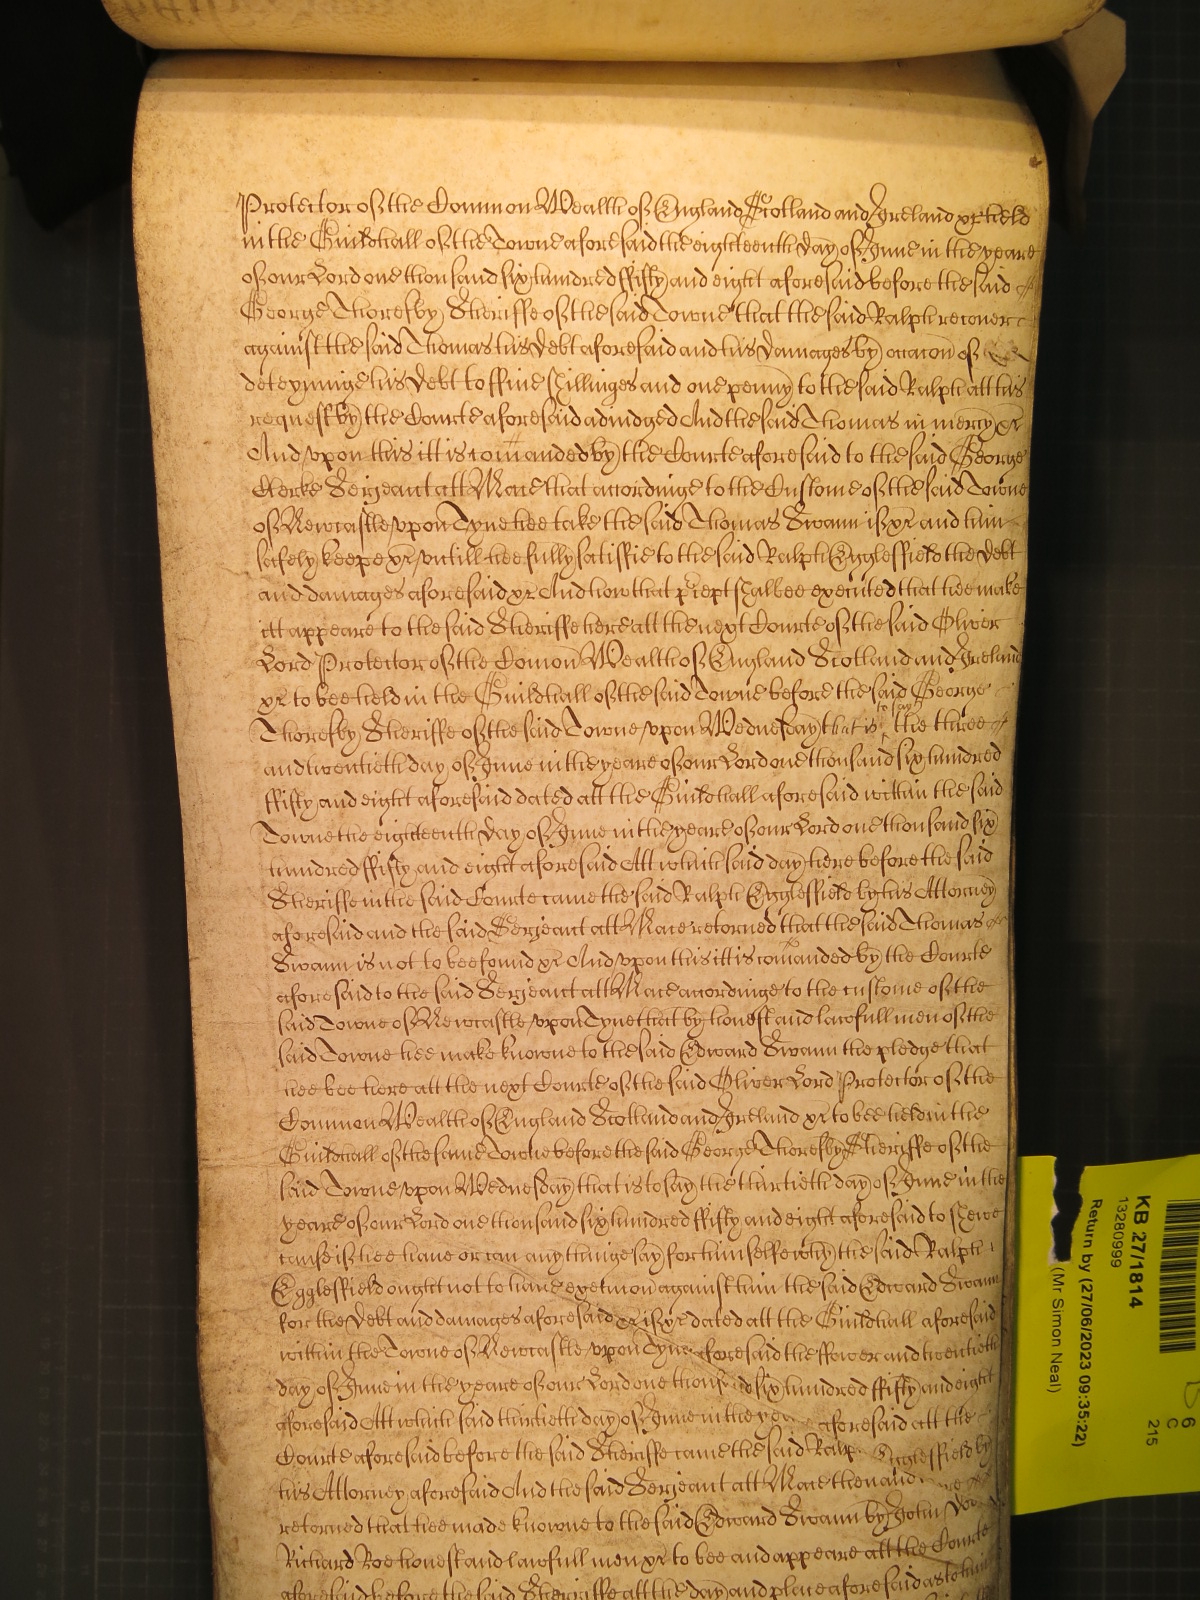 Protector of the Common Wealth of England Scotland and Ireland xr held
in the Guildhall of the Towne aforesaid the eighteenth day of June in the yeare
of our Lord one thousand six hundred fifty and eight aforesaid before the said
George Thoresby Sheriffe of the said Towne that the said Ralph recover
against the said Thomas his debt aforesaid and his damages by occacon of
deteyninge his debt to ffive shillinges and one penny to the said Ralph att his
request by the Courte aforesaid adiudged And the said Thomas in mercy xr
And vpon this itt is comanded by the Courte aforesaid to the said George
Clerke Serjeant att Mace that accordinge to the Custome of the said Towne
of Newcastle vpon Tyne hee take the said Thomas Swann if xr and him
safely keepe xr vntill hee fully satisfie to the said Ralph Egglesfield the debt
and damages aforesaid xr And how that precept shalbee executed that hee make
itt appeare to the said Sheriffe here att the next Courte of the said Oliver
Lord Protector of the Comon Wealth of England Scotland and Ireland
xr to bee held in the Guildhall of the said Towne before the said George
Thoresby Sheriffe of the said Towne vpon Wednesday that is to say the three
and twentieth day of June in the yeare of our Lord one thousand six hundred
ffifty and eight aforesaid dated att the Guildhall aforesaid within the said
Towne the eighteenth day of June in the yeare of our Lord one thousand six
hundred ffifty and eight aforesaid Att which said day here before the said
Sheriffe in the said Courte came the said Ralph Egglesfield by his Attorney
aforesaid and the said Serjeant att Mace returned that the said Thomas
Swann is not to bee found xr And vpon this itt is comanded by the Courte
aforesaid to the said Serjeant att Mace accordinge to the custome of the
said Towne of Newcastle vpon Tyne that by honest and lawfull men of the
said Towne hee make knowne to the said Edward Swann the pledge that
hee bee here att the next Courte of the said Oliver Lord Protector of the
Common Wealth of England Scotland and Ireland xr to bee held in the
Guildhall of the same Towne before the said George Thoresby Sheriffe of the
said Towne vpon Wednesday that is to say the thirtieth day of June in the
yeare of our Lord one thousand six hundred ffifty and eight aforesaid to shewe
cause if hee have or can any thinge say for himselfe why the said Ralph
Egglesfield ought not to have execucon against him the said Edward Swann
for the debt and damages aforesaid xr if xr dated att the Guildhall aforesaid
within the Towne of Newcastle vpon Tyne aforesaid the ffower and twentieth
day of June in the yeare of our Lord one thousand six hundred ffifty and eight
aforesaid Att which said thirtieth day of June in the yeare aforesaid att the
Courte aforesaid before the said Sheriffe came the said Ralph Egglesfield by
his Attorney aforesaid And the said Serjeant att Mace then and
returned that hee made knowne to the said Edward Swann by John Doe
Richard Roe honest and lawfull men xr to bee and appeare att the Courte
aforesaid before the said Sheriffe att the day and place aforesaid as to him
KB 27/1814
13280999
Return by (27/06/2023 09:35:22)
(Mr Simon Neal)
6
C
215